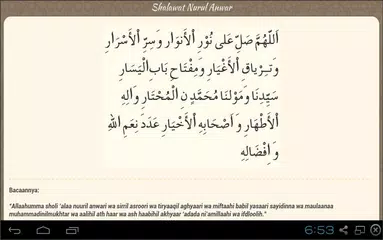 Shalawat Nurul Anwar
اَللّٰهُمَّ صَلِّ عَلٰى نُوْرِ اْلأَنْوَارِ وَسِرِّ اْلأَسْرَارِ
وَتِرْيَاقِ اْلأَغْيَارِ وَمِفْتَاحِ بَابِ الْيَسَارِ
سَيِّدِنَا وَمَوْلٰنَا مُحَمَّدٍنِ الْمُخْتَارِ وَاٰلِهِ
اْلأَطْهَارِ وَاَصْحَابِهِ اْلأَخْيَارِ عَدَدَ نِعَمِ اللهِ
وَاِفْضَالِهِ
Bacaannya:
"Allaahumma sholi 'alaa nuuril anwari wa sirril asroori wa tiryaaqil aghyaari wa miftaahi babil yasaari sayidinna wa maulaanaa
muhammadinilmukhtar wa aalihil ath haar wa ash haabihil akhyaar 'adada ni'amillaahi wa ifdloolih."
6:53